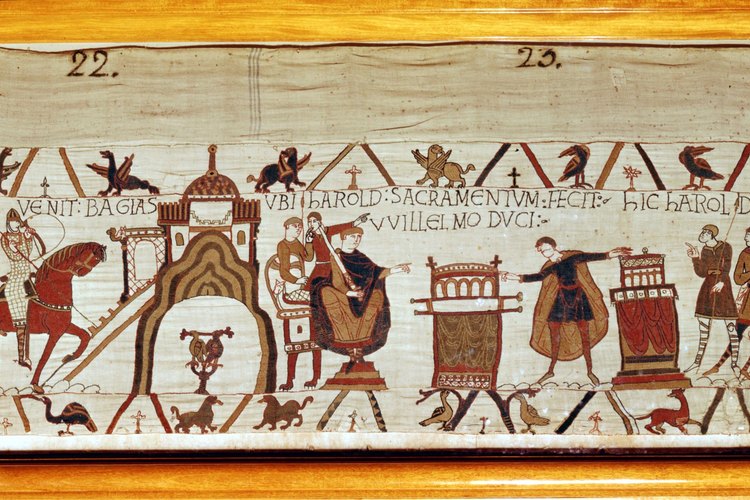 22.
23.
VENIT: BAGIAS
VBI hAROLD: SACRAMENTVM: FECIT:
VVILLELMO DVCI:
hIC hAROLD: D